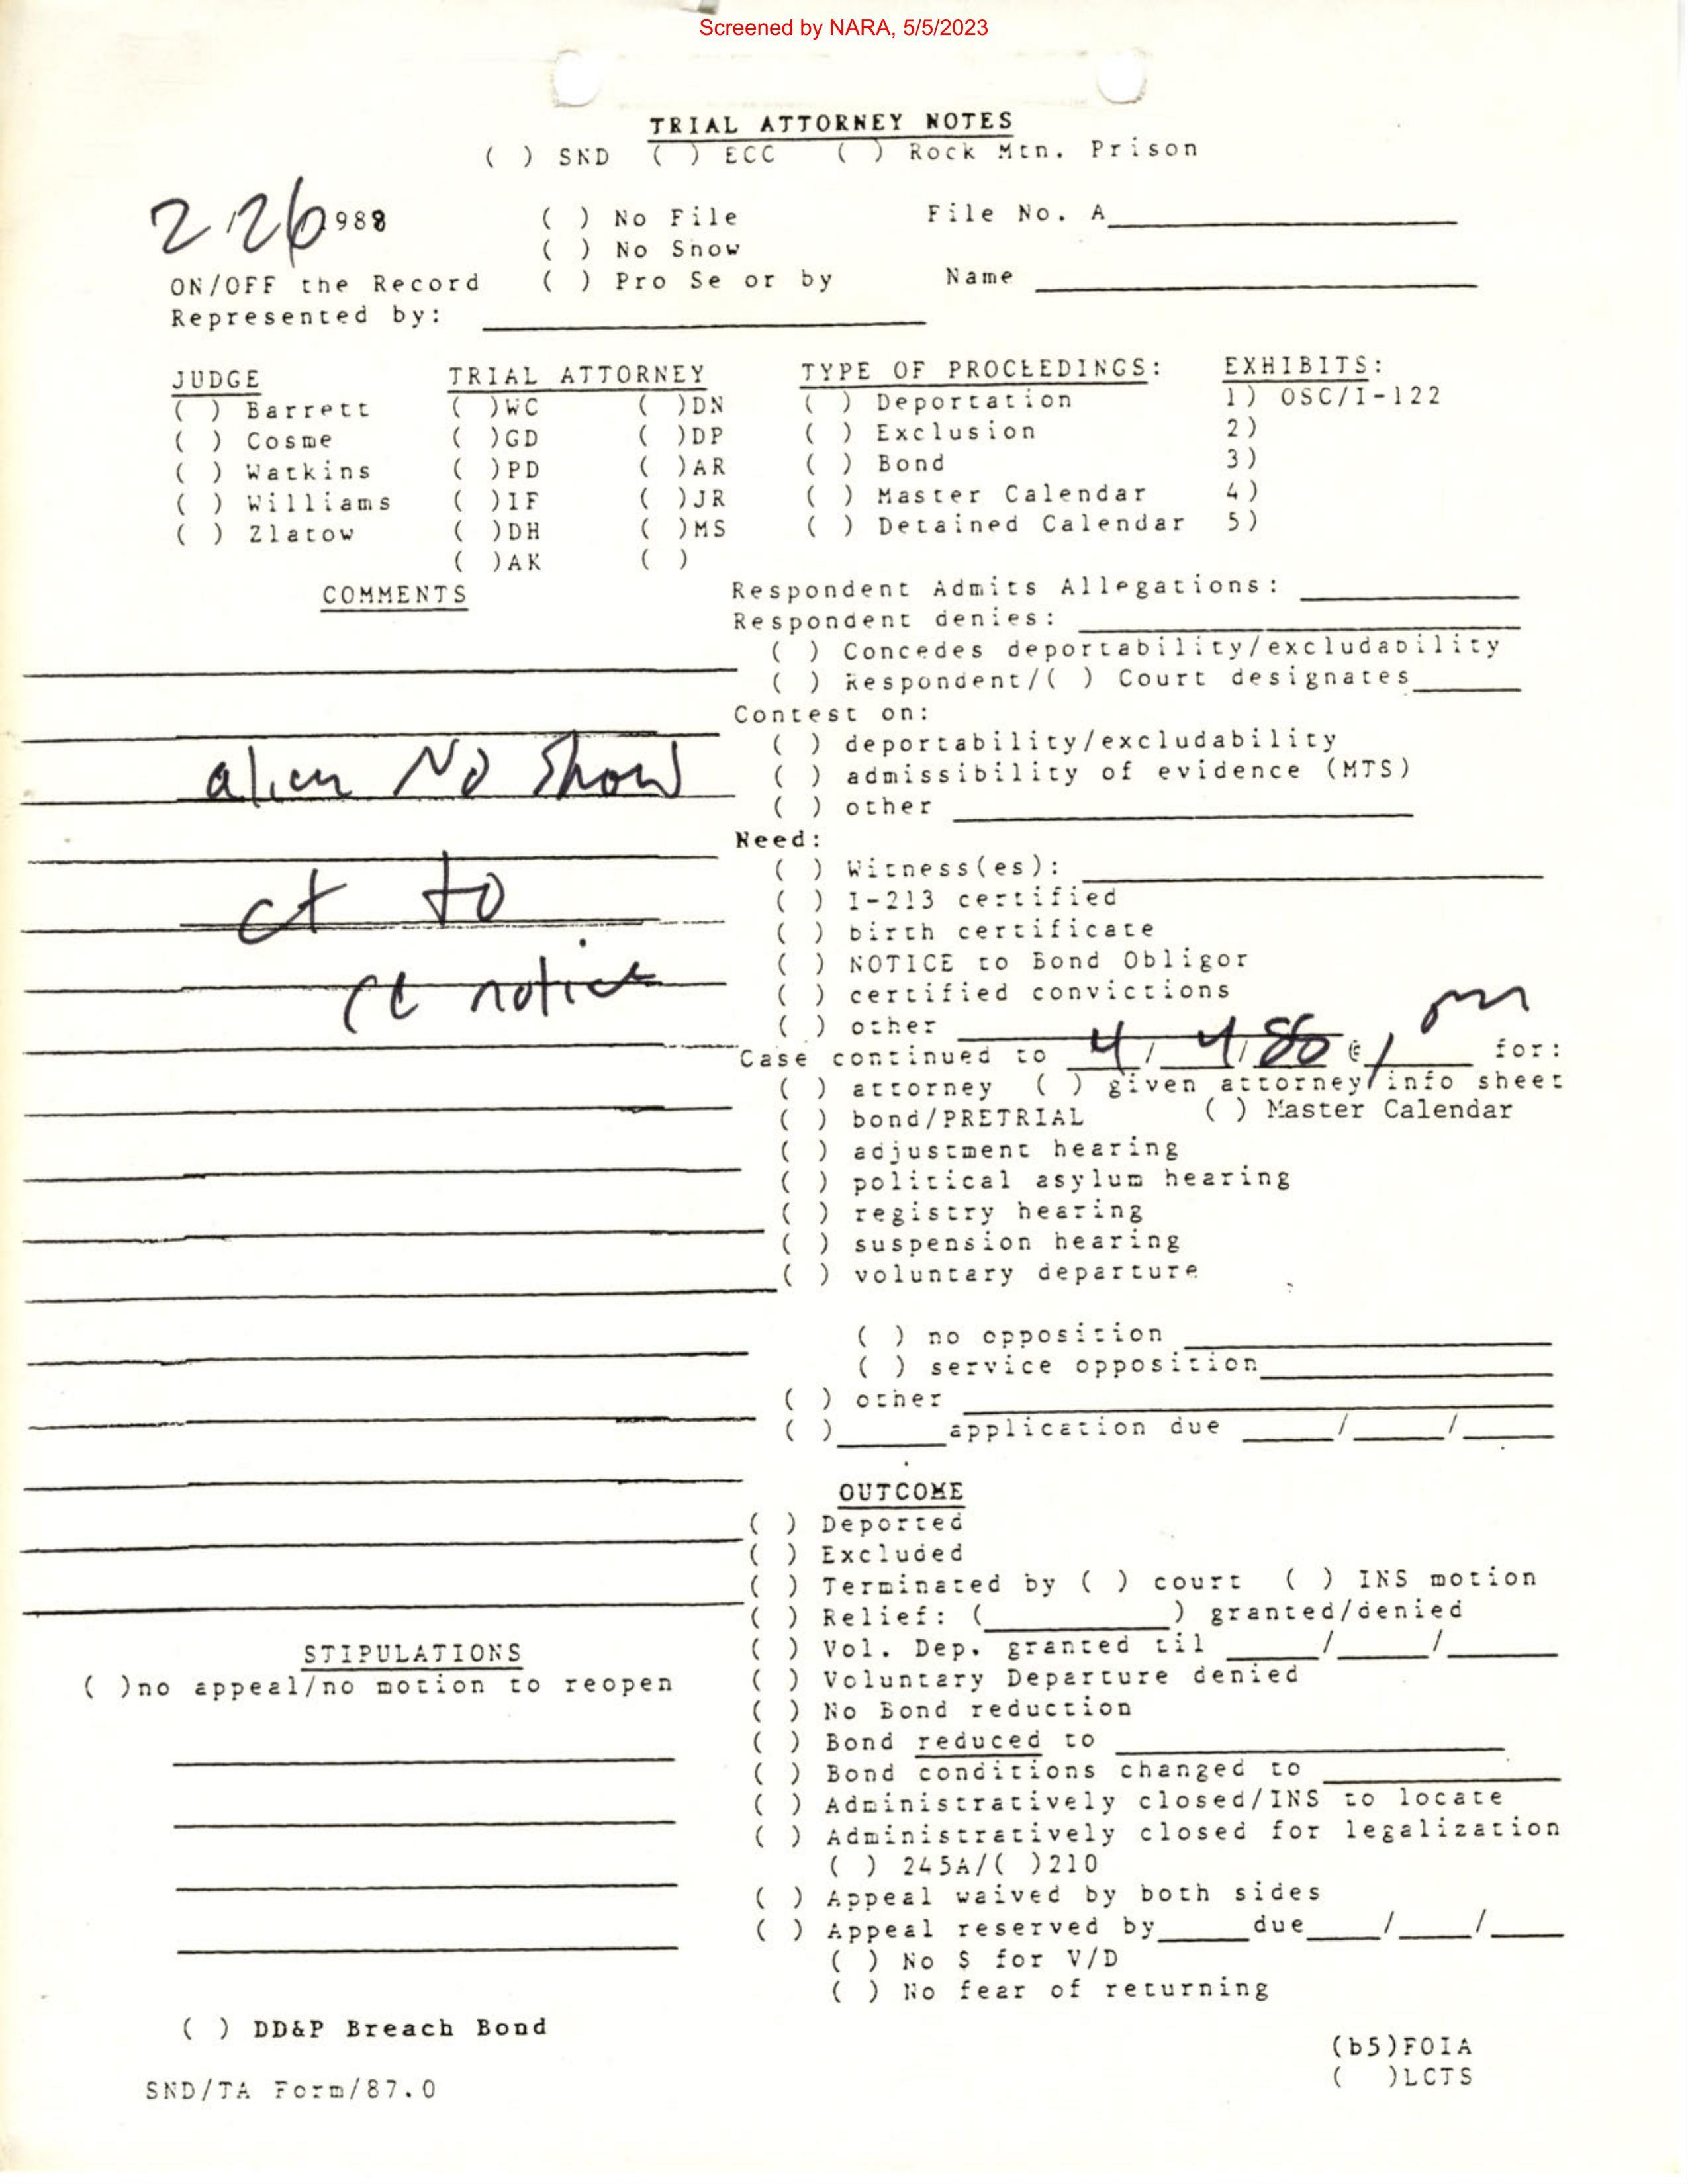 Screened by NARA, 5/5/2023
TRIAL ATTORNEY NOTES
( ) SND ( ) ECC ( ) Rock Mtn. Prison
2/26 1988 ( ) No File File No. A______
( ) No Show
ON/OFF the Record ( ) Pro Se or by Name ______
Represented by: ______
JUDGE TRIAL ATTORNEY TYPE OF PROCEEDINGS: EXHIBITS:
( ) Barrett ( )WC ( )DN ( ) Deportation 1) OSC/I-122
( ) Cosme ( )GD ( )DP ( ) Exclusion 2)
( ) Watkins ( )PD ( )AR ( ) Bond 3)
( ) Williams ( )IF ( )JR ( ) Master Calendar 4)
( ) Zlatow ( )DH ( )MS ( ) Detained Calendar 5)
( )AK ( )
COMMENTS
alien No Show
ct to
notice
Respondent Admits Allegations: ______
Respondent denies: ______
( ) Concedes deportability/excludability
( ) Respondent/( ) Court designates______
Contest on:
( ) deportability/excludability
( ) admissibility of evidence (MTS)
( ) other ______
Need:
( ) Witness(es): ______
( ) I-213 certified
( ) birth certificate
( ) NOTICE to Bond Obligor
( ) certified convictions
( ) other ______
Case continued to 4/ 4/88 @ 1 pm for:
( ) attorney ( ) given attorney/info sheet
( ) bond/PRETRIAL ( ) Master Calendar
( ) adjustment hearing
( ) political asylum hearing
( ) registry hearing
( ) suspension hearing
( ) voluntary departure
( ) no opposition ______
( ) service opposition______
( ) other ______
( )______application due ____/____/____
OUTCOME
( ) Deported
( ) Excluded
( ) Terminated by ( ) court ( ) INS motion
( ) Relief: (______) granted/denied
( ) Vol. Dep. granted til ____/____/____
( ) Voluntary Departure denied
( ) No Bond reduction
( ) Bond reduced to ______
( ) Bond conditions changed to ______
( ) Administratively closed/INS to locate
( ) Administratively closed for legalization
( ) 245A/( )210
( ) Appeal waived by both sides
( ) Appeal reserved by____due____/____/____
( ) No $ for V/D
( ) No fear of returning
STIPULATIONS
( )no appeal/no motion to reopen
( ) DD&P Breach Bond
(b5)FOIA
( )LCTS
SND/TA Form/87.0